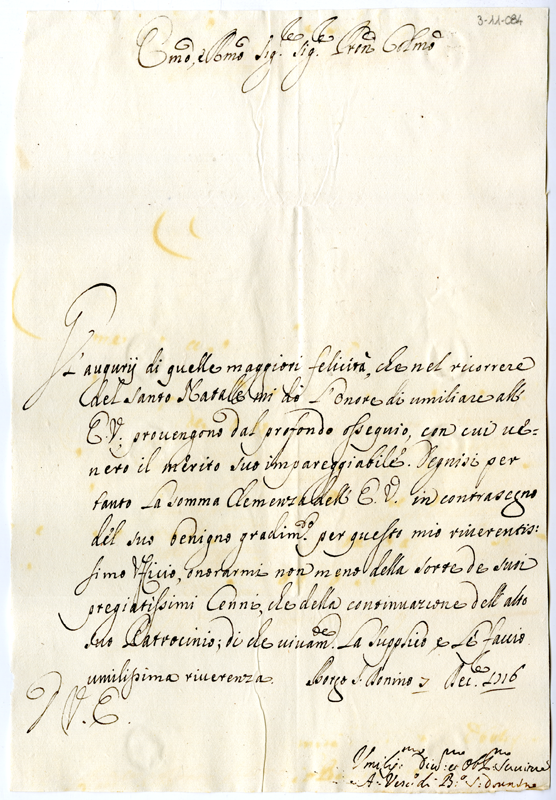 3-11-084
Emo, e Rmo Sig.re Sig.re Pron Colmo
Gl'augurij di quelle maggiori felicità, che nel ricorrere
del Santo Natale mi dò l'onore di umiliare all'
E. V. provengono dal profondo ossequio, con cui ve-
nero il merito suo impareggiabile. Degnisi per
tanto la somma Clemenza dell'E. V. in contrasegno
del suo benigno gradim.o per questo mio riverentis-
simo Uficio, onorarmi non meno della sorte de suoi
pregiatissimi Cenni, che della continuazione dell'alto
suo Patrocinio; di che vivam.e La Supplico e Le faccio
umilissima riverenza. Borgo S. Donino 7 Dec.e 1716
V. E.
Umiliss.mo Div.mo et Obl.mo Servitore
A. Vesc.o di B.o S. Donnino